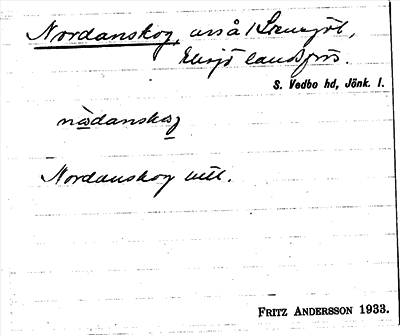 Nordanskog,
Eksjö landsförs.
S. Vedbo hd, Jönk. l.
nɷdanskɷg
Nordanskog utt.
FRITZ ANDERSSON 1933.